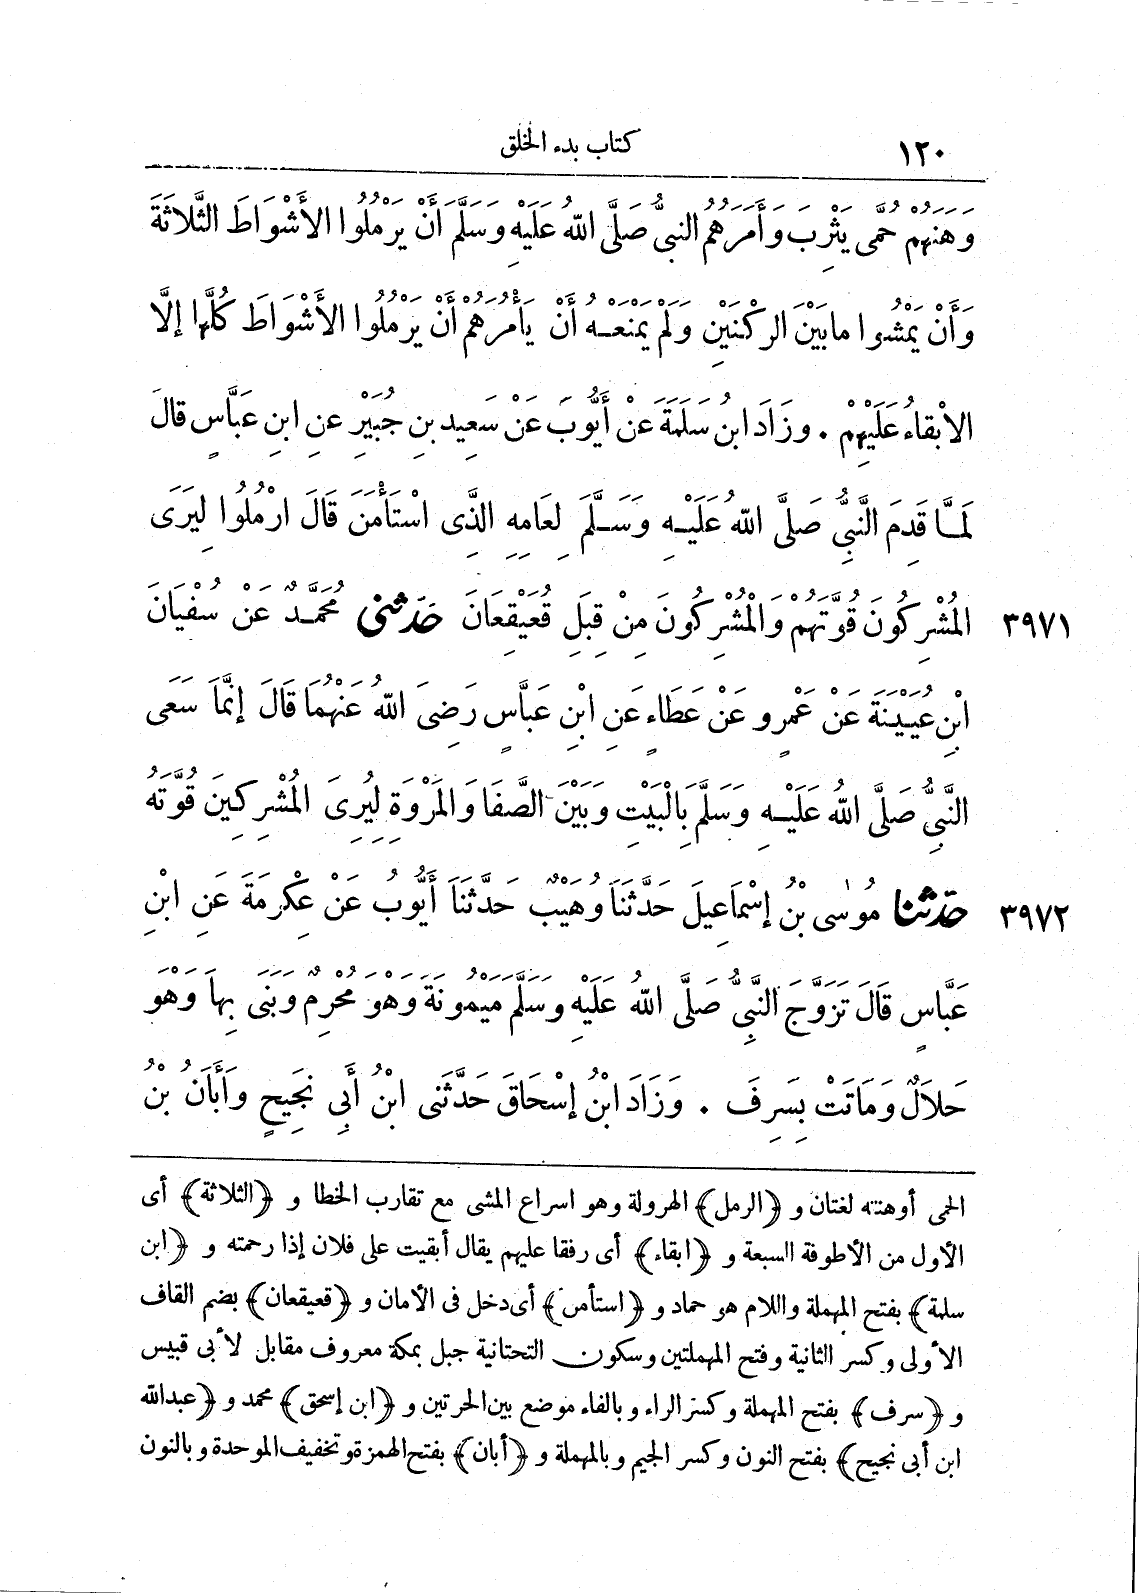 ١٢٠
كتاب بدء الخلق
وَهَنَهُمْ حُمَّى يَثْرِبَ وَأَمَرَهُمُ النبىُّ صَلَّى اللهُ عَلَيْهِ وَسَلَّمَ أَنْ يَرْمُلُوا الأَشْوَاطَ الثَّلَاثَةَ
وَأَنْ يَمْشُوا مابَيْنَ الركْنَيْنِ وَلَمْ يَمْنَعْهُ أَنْ يَأْمُرَهُمْ أَنْ يَرْمُلُوا الأَشْوَاطَ كُلَّها إلَّا
الابْقاءُ عَلَيْهِمْ . وزَادَ ابنُ سَلَمَةَ عَنْ أَيُّوبَ عَنْ سَعِيدِ بنِ جُبَيْرٍ عنِ ابنِ عَبَّاسٍ قالَ
لَمَّا قَدِمَ النَّبِيُّ صَلَّى اللهُ عَلَيْهِ وَسَلَّمَ لِعَامِهِ الَّذِى اسْتَأْمَنَ قَالَ ارْمُلُوا لِيَرَى
المُشْرِكُونَ قُوَّتَهُمْ وَالْمُشْرِكُونَ مِنْ قِبَلِ قُعَيْقِعَانَ حَدَّثنى مُحَمَّدٌ عَنْ سُفْيَانَ ٣٩٧١
ابْنِ عُيَيْنَةَ عَنْ عَمْرٍو عَنْ عَطَاءٍ عَنِ ابْنِ عَبَّاسٍ رَضِىَ اللهُ عَنْهُمَا قَالَ إنَّمَا سَعَى
النَّبِيُّ صَلَّى اللهُ عَلَيْهِ وَسَلَّمَ بِالْبَيْتِ وَبَيْنَ الصَّفَا وَالمَرْوَةِ لِيُرِىَ المُشْرِكِينَ قُوَّتَهُ
حَدَّثنا مُوسَى بْنُ إسْمَاعِيلَ حَدَّثَنَا وُهَيْبٌ حَدَّثَنَا أَيُّوبُ عَنْ عِكْرِمَةَ عَنِ ابْنِ ٣٩٧٢
عَبَّاسٍ قَالَ تَزَوَّجَ النَّبِيُّ صَلَّى اللهُ عَلَيْهِ وَسَلَّمَ مَيْمُونَةَ وَهُوَ مُحْرِمٌ وَبَنَى بِهَا وَهْوَ
حَلَالٌ وَمَاتَتْ بِسَرِفَ . وَزَادَ ابْنُ إسْحَاقَ حَدَّثَنى ابْنُ أَبِي نَجِيحٍ وَأَبَانُ بْنُ
الحمى أوهنته لغتان و ﴿الرمل﴾ الهرولة وهو اسراع المشى مع تقارب الخطا و ﴿الثلاثة﴾ أى
الأول من الأطوفة السبعة و ﴿ابقاء﴾ أى رفقا عليهم يقال أبقيت على فلان إذا رحمته و ﴿ابن
سلمة﴾ بفتح المهملة واللام هو حماد و ﴿استأمن﴾ أى دخل فى الأمان و ﴿قعيقعان﴾ بضم القاف
الأولى وكسر الثانية وفتح المهملتين وسكون التحتانية جبل بمكة معروف مقابل لأبى قبيس
و ﴿سرف﴾ بفتح المهملة وكسر الراء وبالفاء موضع بين الحرتين و ﴿ابن إسحق﴾ محمد و ﴿عبدالله
ابن أبى نجيح﴾ بفتح النون وكسر الجيم وبالمهملة و ﴿أبان﴾ بفتح الهمزة وتخفيف الموحدة وبالنون